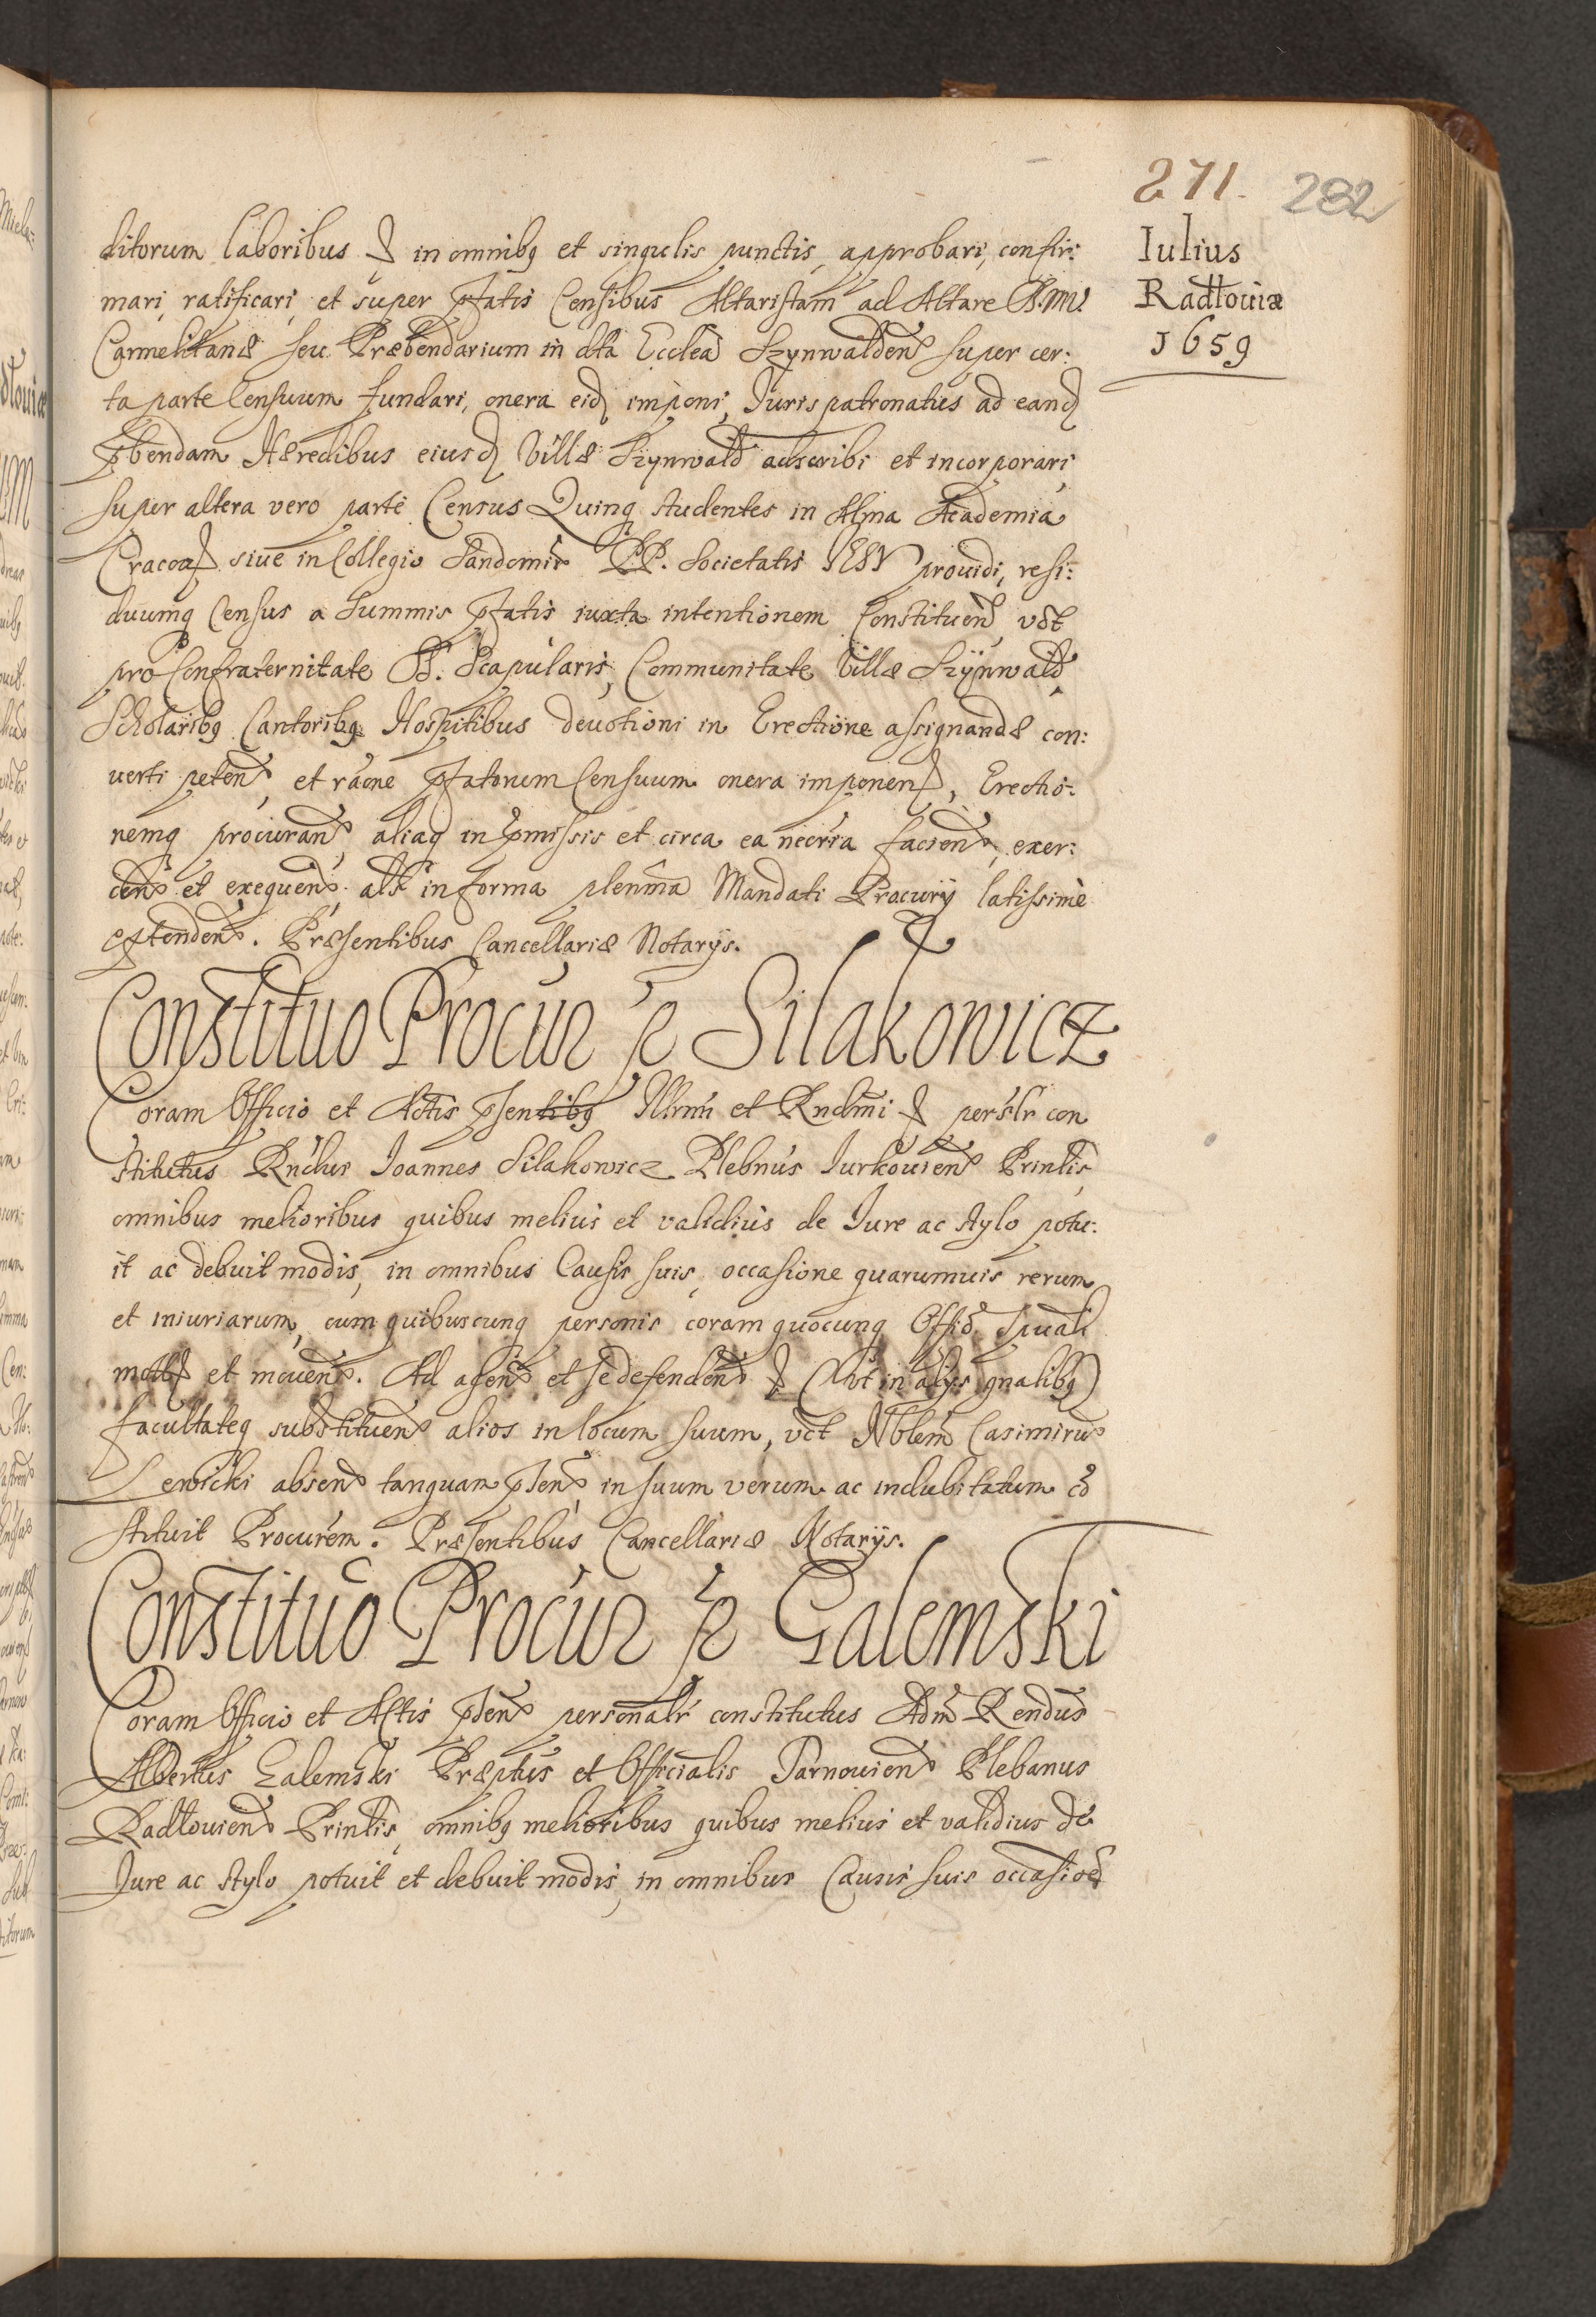 271. 282
Iulius
Radłouiæ
1659
ditorum laboribus & in omnibq et singulis punctis, approbari, confir:
mari, ratificari, et super pſatis Censibus Altaristam ad Altare B.M.V.
Carmelitanæ seu Præbendarium in dta Ecclea Szynwalden super cer:
ta parte Censuum fundari, onera eid imponi, Iuris patronatus ad eand
pbendam Hæredibus eiusd Villæ Szynwald adscribi et incorporari,
super altera vero parte Census Quinq studentes in Alma Academia
Cracoa, siue in Collegio Sandomir PP. Societatis IESV prouidi, resi:
duumq Census a Summis pſatis iuxta intentionem Constituen, vdt
pro Confraternitate S. Scapularis, Communitate Villæ Szynwald
Scholaribq Cantoribq Hospitibus deuotioni in Erectione assignandæ con:
uerti peten, et raone pſatorum Censuum onera imponen, Erectio:
nemq procuran, aliaq in pmissis et circa ea necria facien, exer:
cen et exequen, als in forma plenma Mandati Procurij latissime
extenden. Præsentibus Cancellariæ Notarijs.
Constituo Procur p Silakowicz
Coram Officio et Actis psentibq Illrmi et Rndmi & perslr con
stitutus Rndus Ioannes Silakowicz Plebnus Iurkouien Printis,
omnibus melioribus quibus melius et validius de Iure ac stylo potu:
it ac debuit modis, in omnibus Causis suis, occasione quarumuis rerum
et iniuriarum, cum quibuscunq personis coram quocunq Offio Spuali
motis et mouen. Ad agen et se defenden & (Vt in alijs gnalibq)
facultateq substituen alios in locum suum, vdt Nblem Casimiru
Lewicki absen tanquam psen, in suum verum ac indubitatum co
stituit Procurem. Præsentibus Cancellariæ Notarijs.
Constituo Procur p Galemski
Coram Officio et Actis psen personalr constitutus Adm Rendus
Albertus Galemski Præptus et Officialis Tarnouien Plebanus
Radłouien Printis, omnibq melioribus quibus melius et validius de
Iure ac stylo potuit et debuit modis, in omnibus Causis suis occasioe